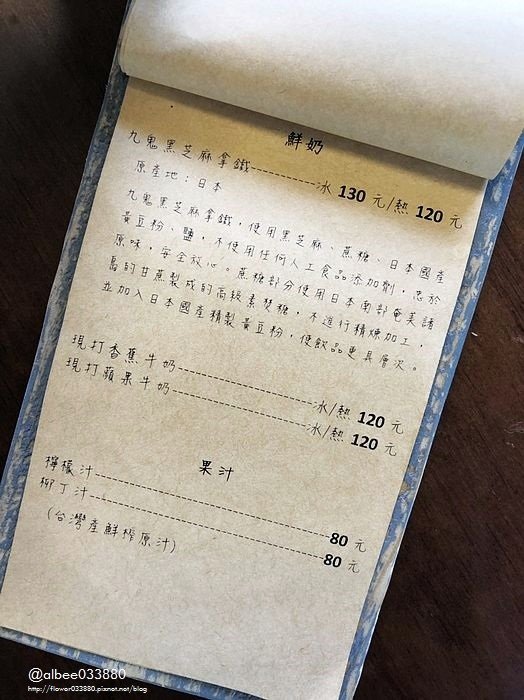 鮮奶
九鬼黑芝麻拿鐵----------冰 130 元/熱 120 元
原產地：日本
九鬼黑芝麻拿鐵，使用黑芝麻、蔗糖、日本國產
黃豆粉、鹽，不使用任何人工食品添加劑，忠於
原味，安全放心。蔗糖部分使用日本南部奄美諸
島的甘蔗製成的高級素焚糖，不進行精煉加工，
並加入日本國產精製黃豆粉，使飲品更具層次。
現打香蕉牛奶--------------------冰/熱 120 元
現打蘋果牛奶--------------------冰/熱 120 元
果汁
檸檬汁-----------------------------------80 元
柳丁汁-----------------------------------80 元
(台灣產鮮榨原汁)
@albee033880
http://flower033880.pixnet.net/blog